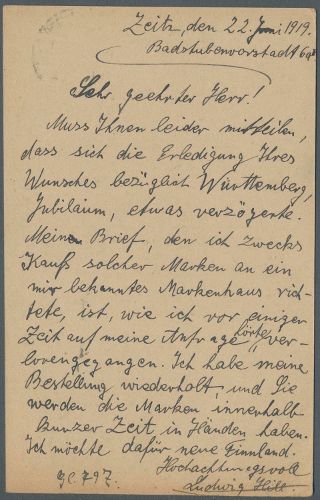 Zeitz, den 22. Juni 1919.
Badstubenvorstadt 6a
Sehr geehrter Herr!
Muss Ihnen leider mitteilen,
dass sich die Erledigung Ihres
Wunsches bezüglich Württemberg,
Jubiläum, etwas verzögerte.
Meinen Brief, den ich zwecks
Kaufs solcher Marken an ein
mir bekanntes Markenhaus rich-
tete, ist, wie ich vor einiger
Zeit auf meine Anfrage hörte, ver-
lorengegangen. Ich habe meine
Bestellung wiederholt, und Sie
werden die Marken innerhalb
kurzer Zeit in Händen haben.
Ich möchte dafür neue Finnland.
Hochachtungsvoll
Ludwig Hill.